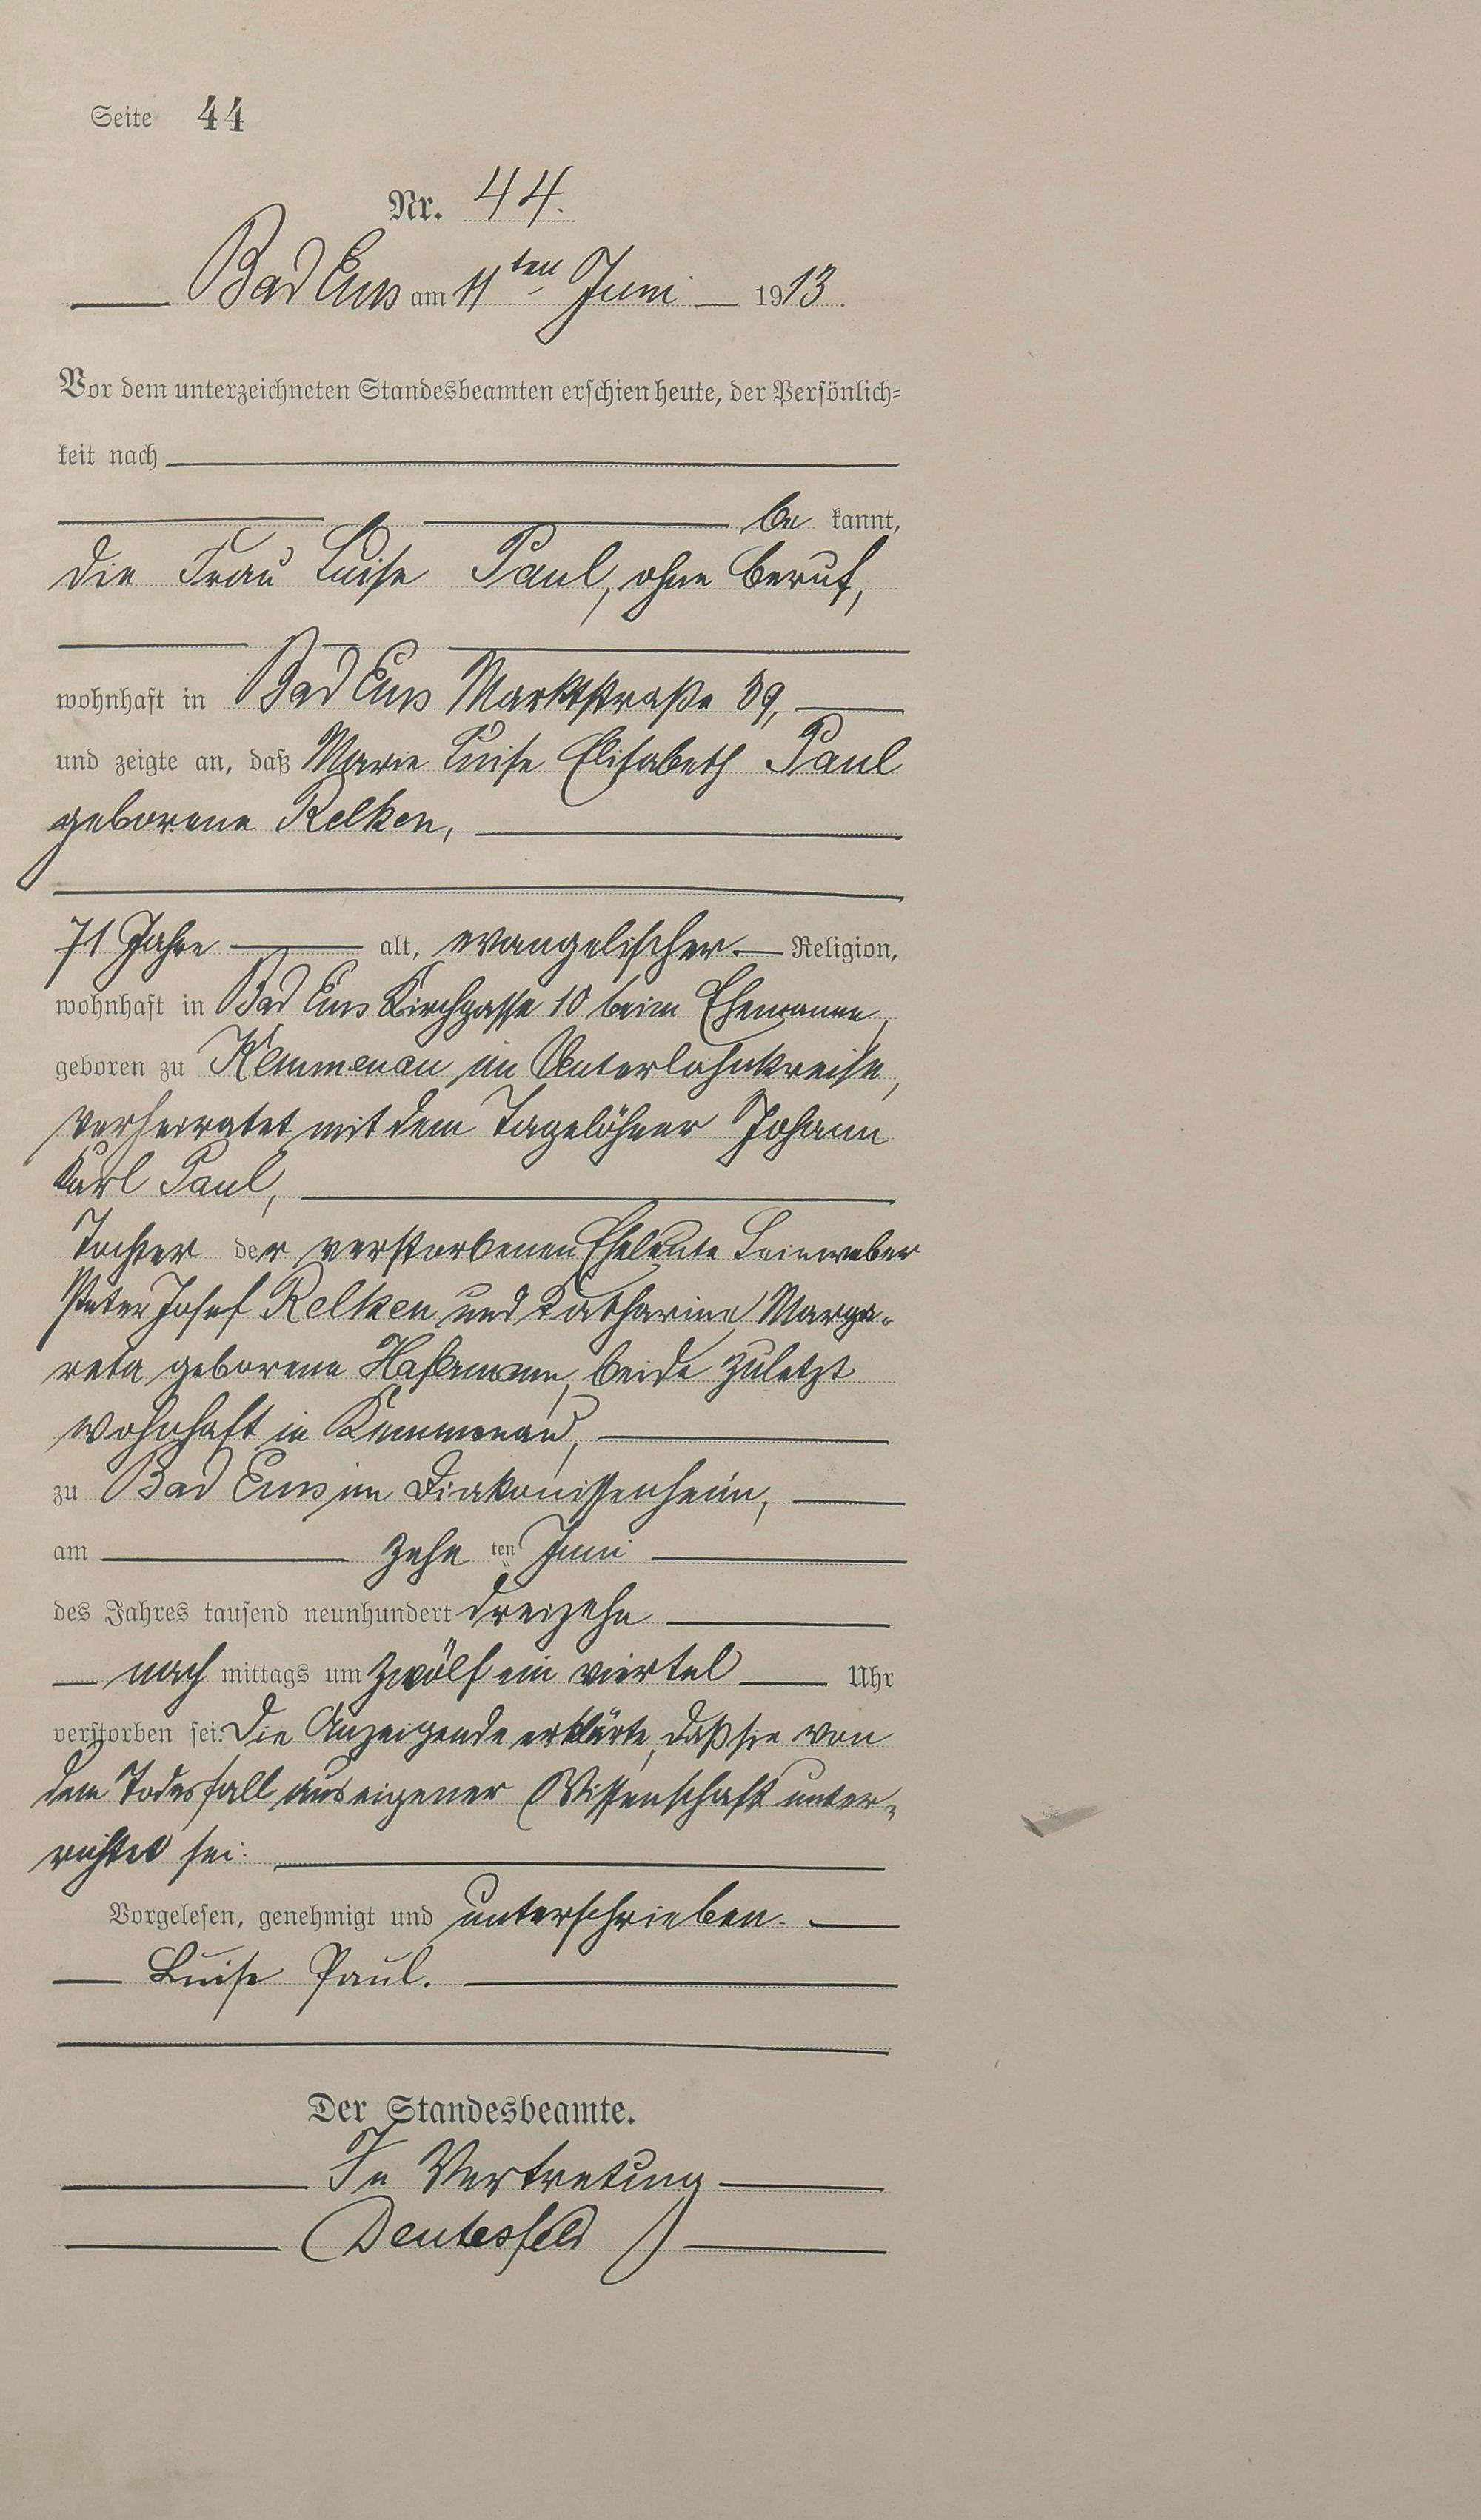 Seite 44
Nr. 44.
Bad Ems am 11ten Juni 1913.
Vor dem unterzeichneten Standesbeamten erschien heute, der Persönlich-
keit nach
be kannt,
die Frau Luise Paul, ohne Beruf,
wohnhaft in Bad Ems Marktstraße 39,
und zeigte an, daß Marie Luise Elisabeth Paul
geborene Relken,
71 Jahre alt, evangelischer Religion,
wohnhaft in Bad Ems Kirchgasse 10 beim Ehemanne,
geboren zu Kemmenau im Unterlahnkreise,
verheiratet mit dem Tagelöhner Johann
Karl Paul,
Tochter der verstorbenen Eheleute Leinweber
Peter Josef Relken und Katharine Marga-
reta geborene beide zuletzt
wohnhaft in Kemmenau,
zu Bad Ems im Diakonissenheim,
am zehn ten Juni
des Jahres tausend neunhundert dreizehn
nach mittags um zwölf ein viertel Uhr
verstorben sei. Die Anzeigende erklärte, daß sie von
dem Todesfall aus eigener Wissenschaft unter-
richtet sei.
Vorgelesen, genehmigt und unterschrieben.
Luise Paul.
Der Standesbeamte.
In Vertretung
Deutesfeld